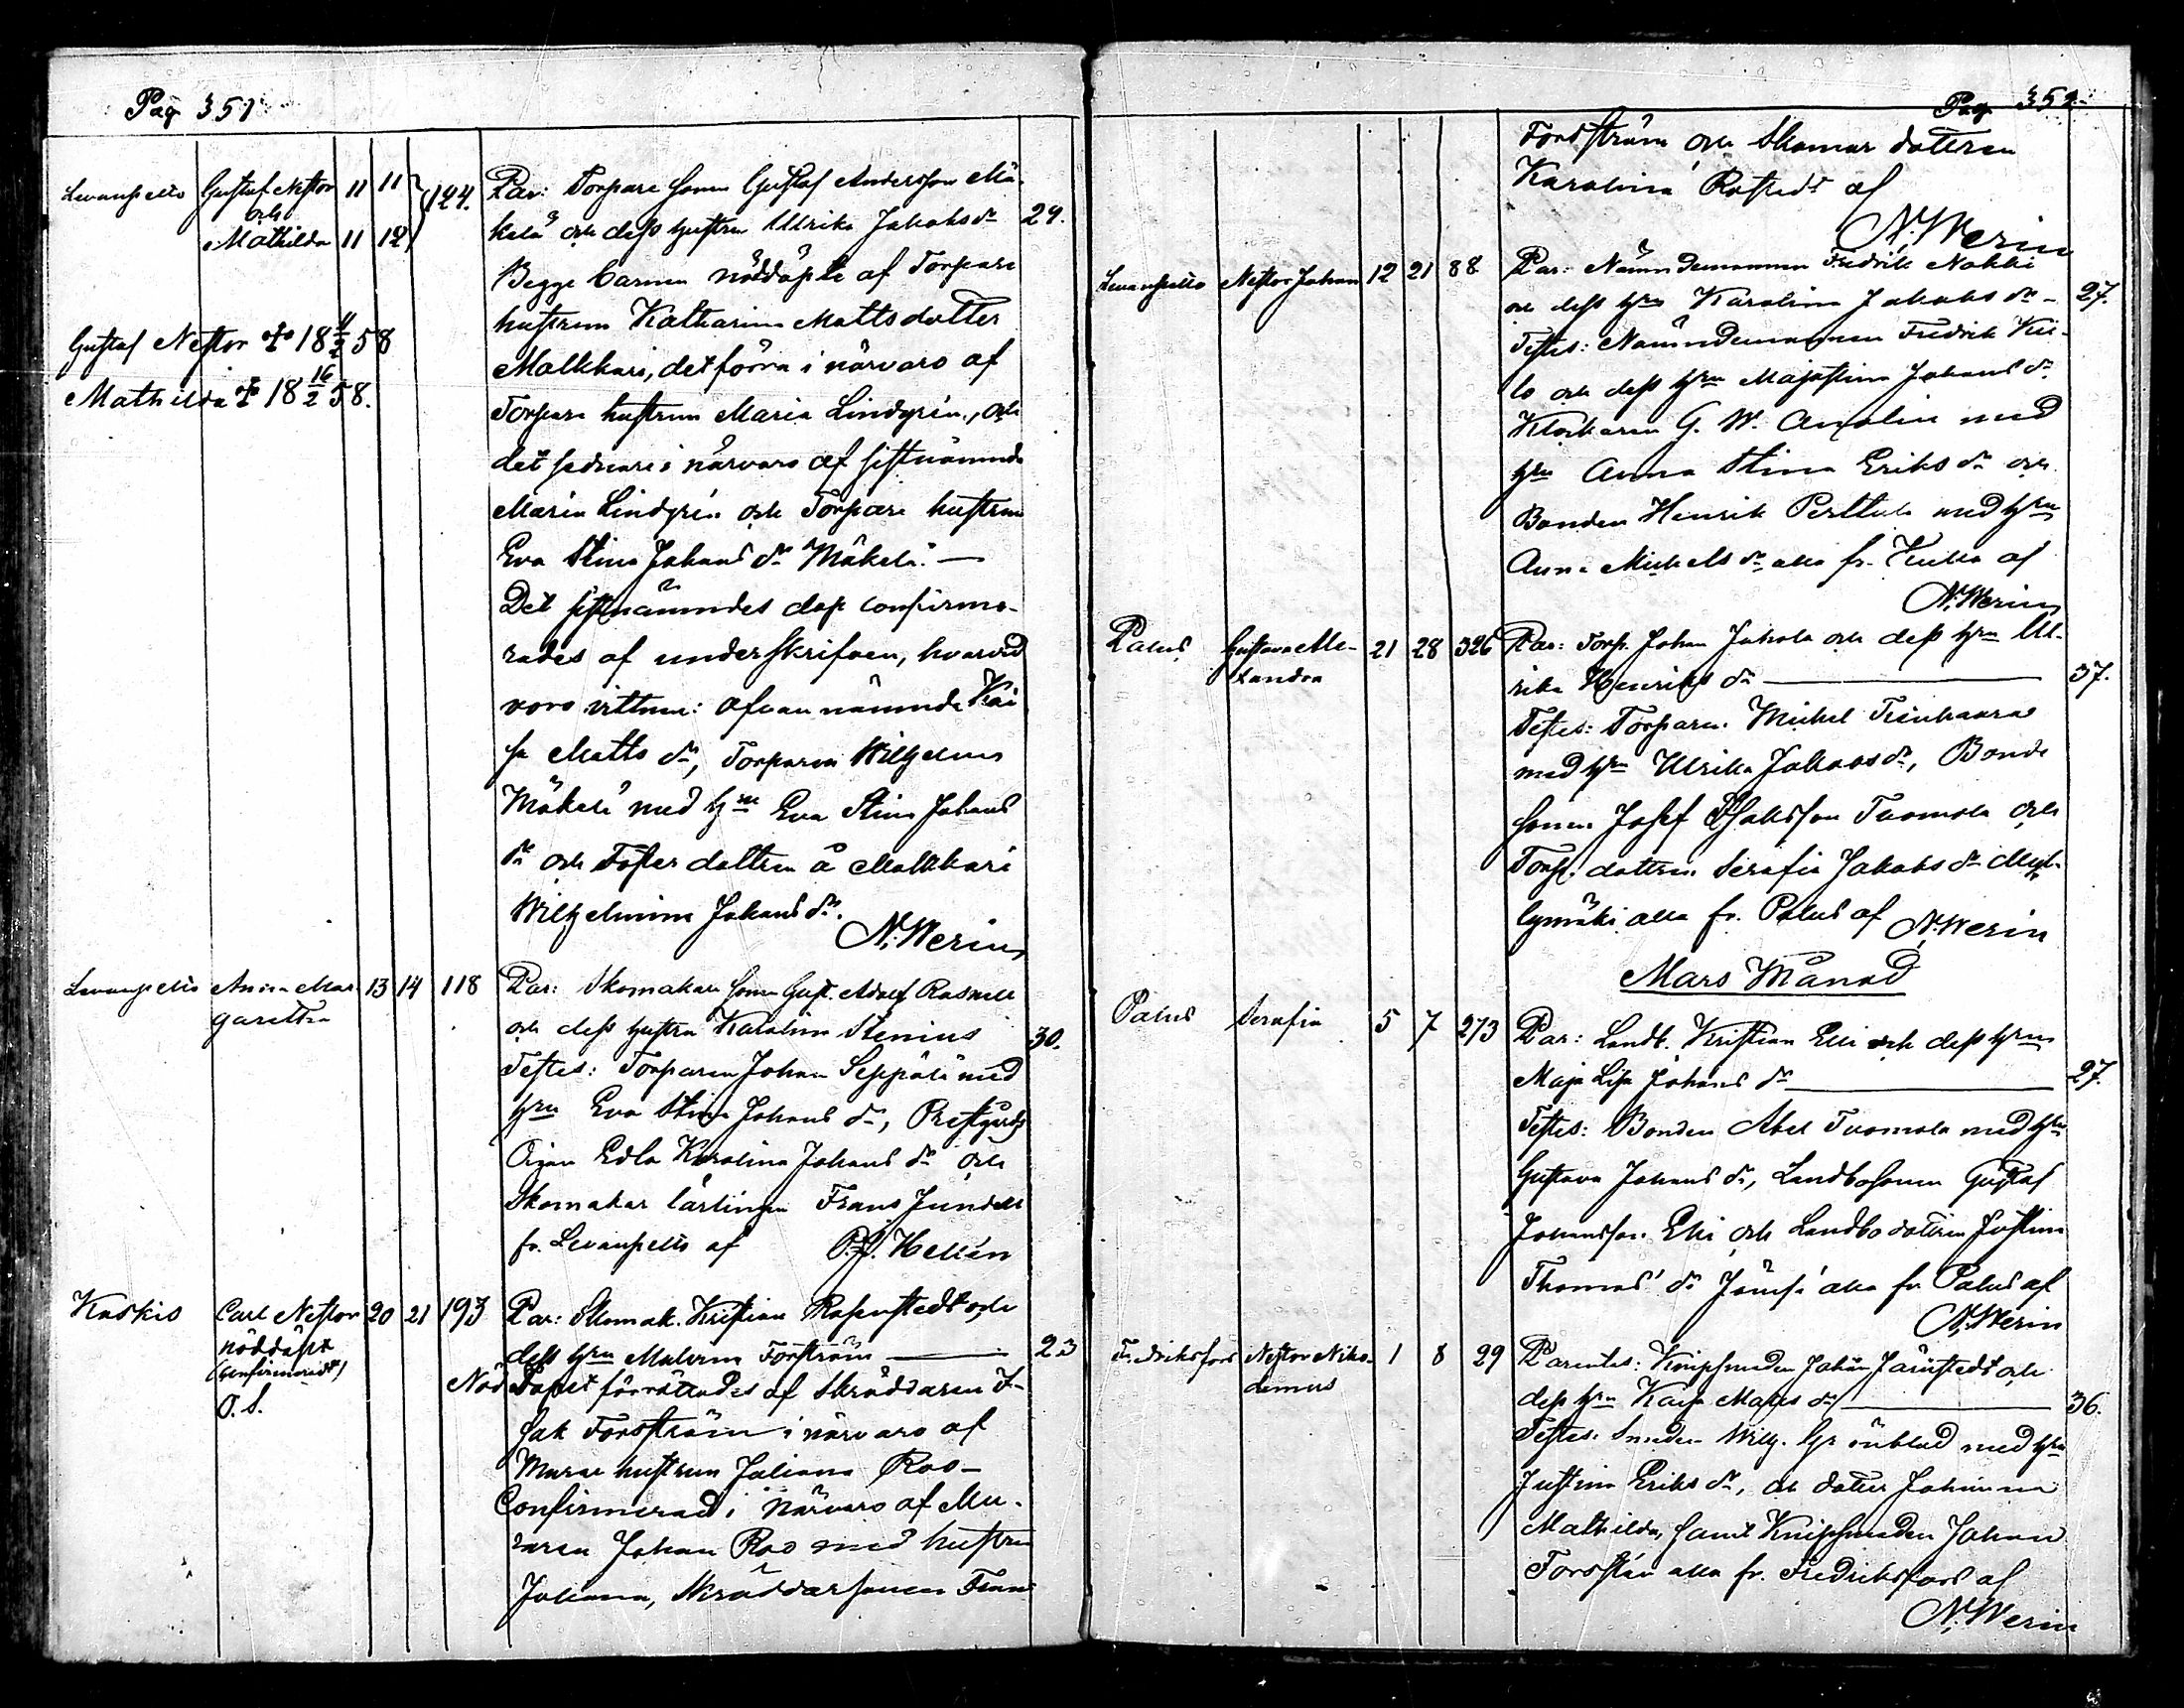 Pag 351
Levanpelto Gustaf Nestor 11 11 124.
och
Mathilda 11 12
Gustaf Nestor † 18 11/2 58
Mathilda † 18 16/2 58.
Par: Torpare sonen Gustaf Andersson Mä-
kelä och dess hustru Ulrika Jakobs dr 24.
Begge barnen nöddöpte af Torpare
hustrun Katharina Mattsdotter
Malkkari, det förra i närvaro af
Torpare hustrun Maria Lindgrén, och
det sednare i närvaro af sistnämnda
Maria Lindgrén och Torpare hustrun
Eva Stina Johans dr Mäkelä. —
Det sistnämndes dop confirme-
rades af underskrifven, hvarvid
voro vittnen: ofvannämnda Kai
sa Matts dr, Torparen Wilhelm
Mäkelä med hru Eva Stina Johans
dr och Foster dottren å Malkkari
Wilhelmina Johans dr.
N. Werin
Levanpelto Anna Mar 13 14 118
garettha
Par: Skomakare sonen Gust. Adolf Rosnell
och dess hustru Karolina Stenius 30.
Testes: Torparen Johan Seppälä med
hru Eva Stina Johans dr, Prestgårds
Pigan Edla Karolina Johans dr och
Skomakar lärlingen Frans Jundell
fr. Levanpelto af P.J. Hellén
Kaskis Carl Nestor 20 21 193
nöddöpt
(confirmeradt)
O. S.
Par: Skomak. Kristian Rosenstedt och
dess hru Malvina Forsström — 23
Nöd Dopet förrättades af Skräddaren I-
sak Forsström i närvaro af
Murare hustrun Juliana Roo —
Confirmerad i närvaro af Mu-
raren Johan Roo med hustru
Juliana, Skräddarsonen Frans
Pag 352
Forsström och Skomar dottren
Karolina Rosstedt af
N. Werin
Levanpelto Nestor Johan 12 21 88
Par: Nämndemannen Fredrik Nokki
och dess hru Karolina Jakobs dr — 27.
Testes: Nämndemannen Fredrik Kii-
lo och dess hru Maja Stina Johans dr
Klockaren G. W. Amalin med
hru Anna Stina Eriks dr och
Bonden Henrik Perttula med hru
Anna Michels dr alla fr. Kulla af
N. Werin
Palus Gustava Ale- 21 28 326
xandra
Par: Torp. Johan Juhola och dess hru Ul-
rika Henriks dr — 37.
Testes: Torparen Michel
med hru Ulrika Jakobs dr, Bonde
sonen Josef Isaksson Tuomola och
Torp. dottren Serafia Jakobs dr Myl-
lymäki alla fr. Palus af N. Werin
Mars Månad
Palus Serafia 5 7 273
Par: Landb. Kristian Elli och dess hru
Maja Lisa Johans dr — 27.
Testes: Bonden Abel Tuomola med hru
Gustava Johans dr, Landbosonen Gustaf
Johansson Elli och Landbo dottren Justina
Thomas dr alla fr. Palus af
N. Werin
Fredriksfors Nestor Niko- 1 8 29
demus
Parentes: Knipsmeden Johan Järnstedt och
dess hru Kajsa Matts dr — 36.
Testes: Smeden Wilh. Grönblad med hru
Justina Eriks dr, och dotter Johanna
Mathilda, samt Knipsmeden Johan
Forsstén alla fr. Fredriksfors af
N. Werin